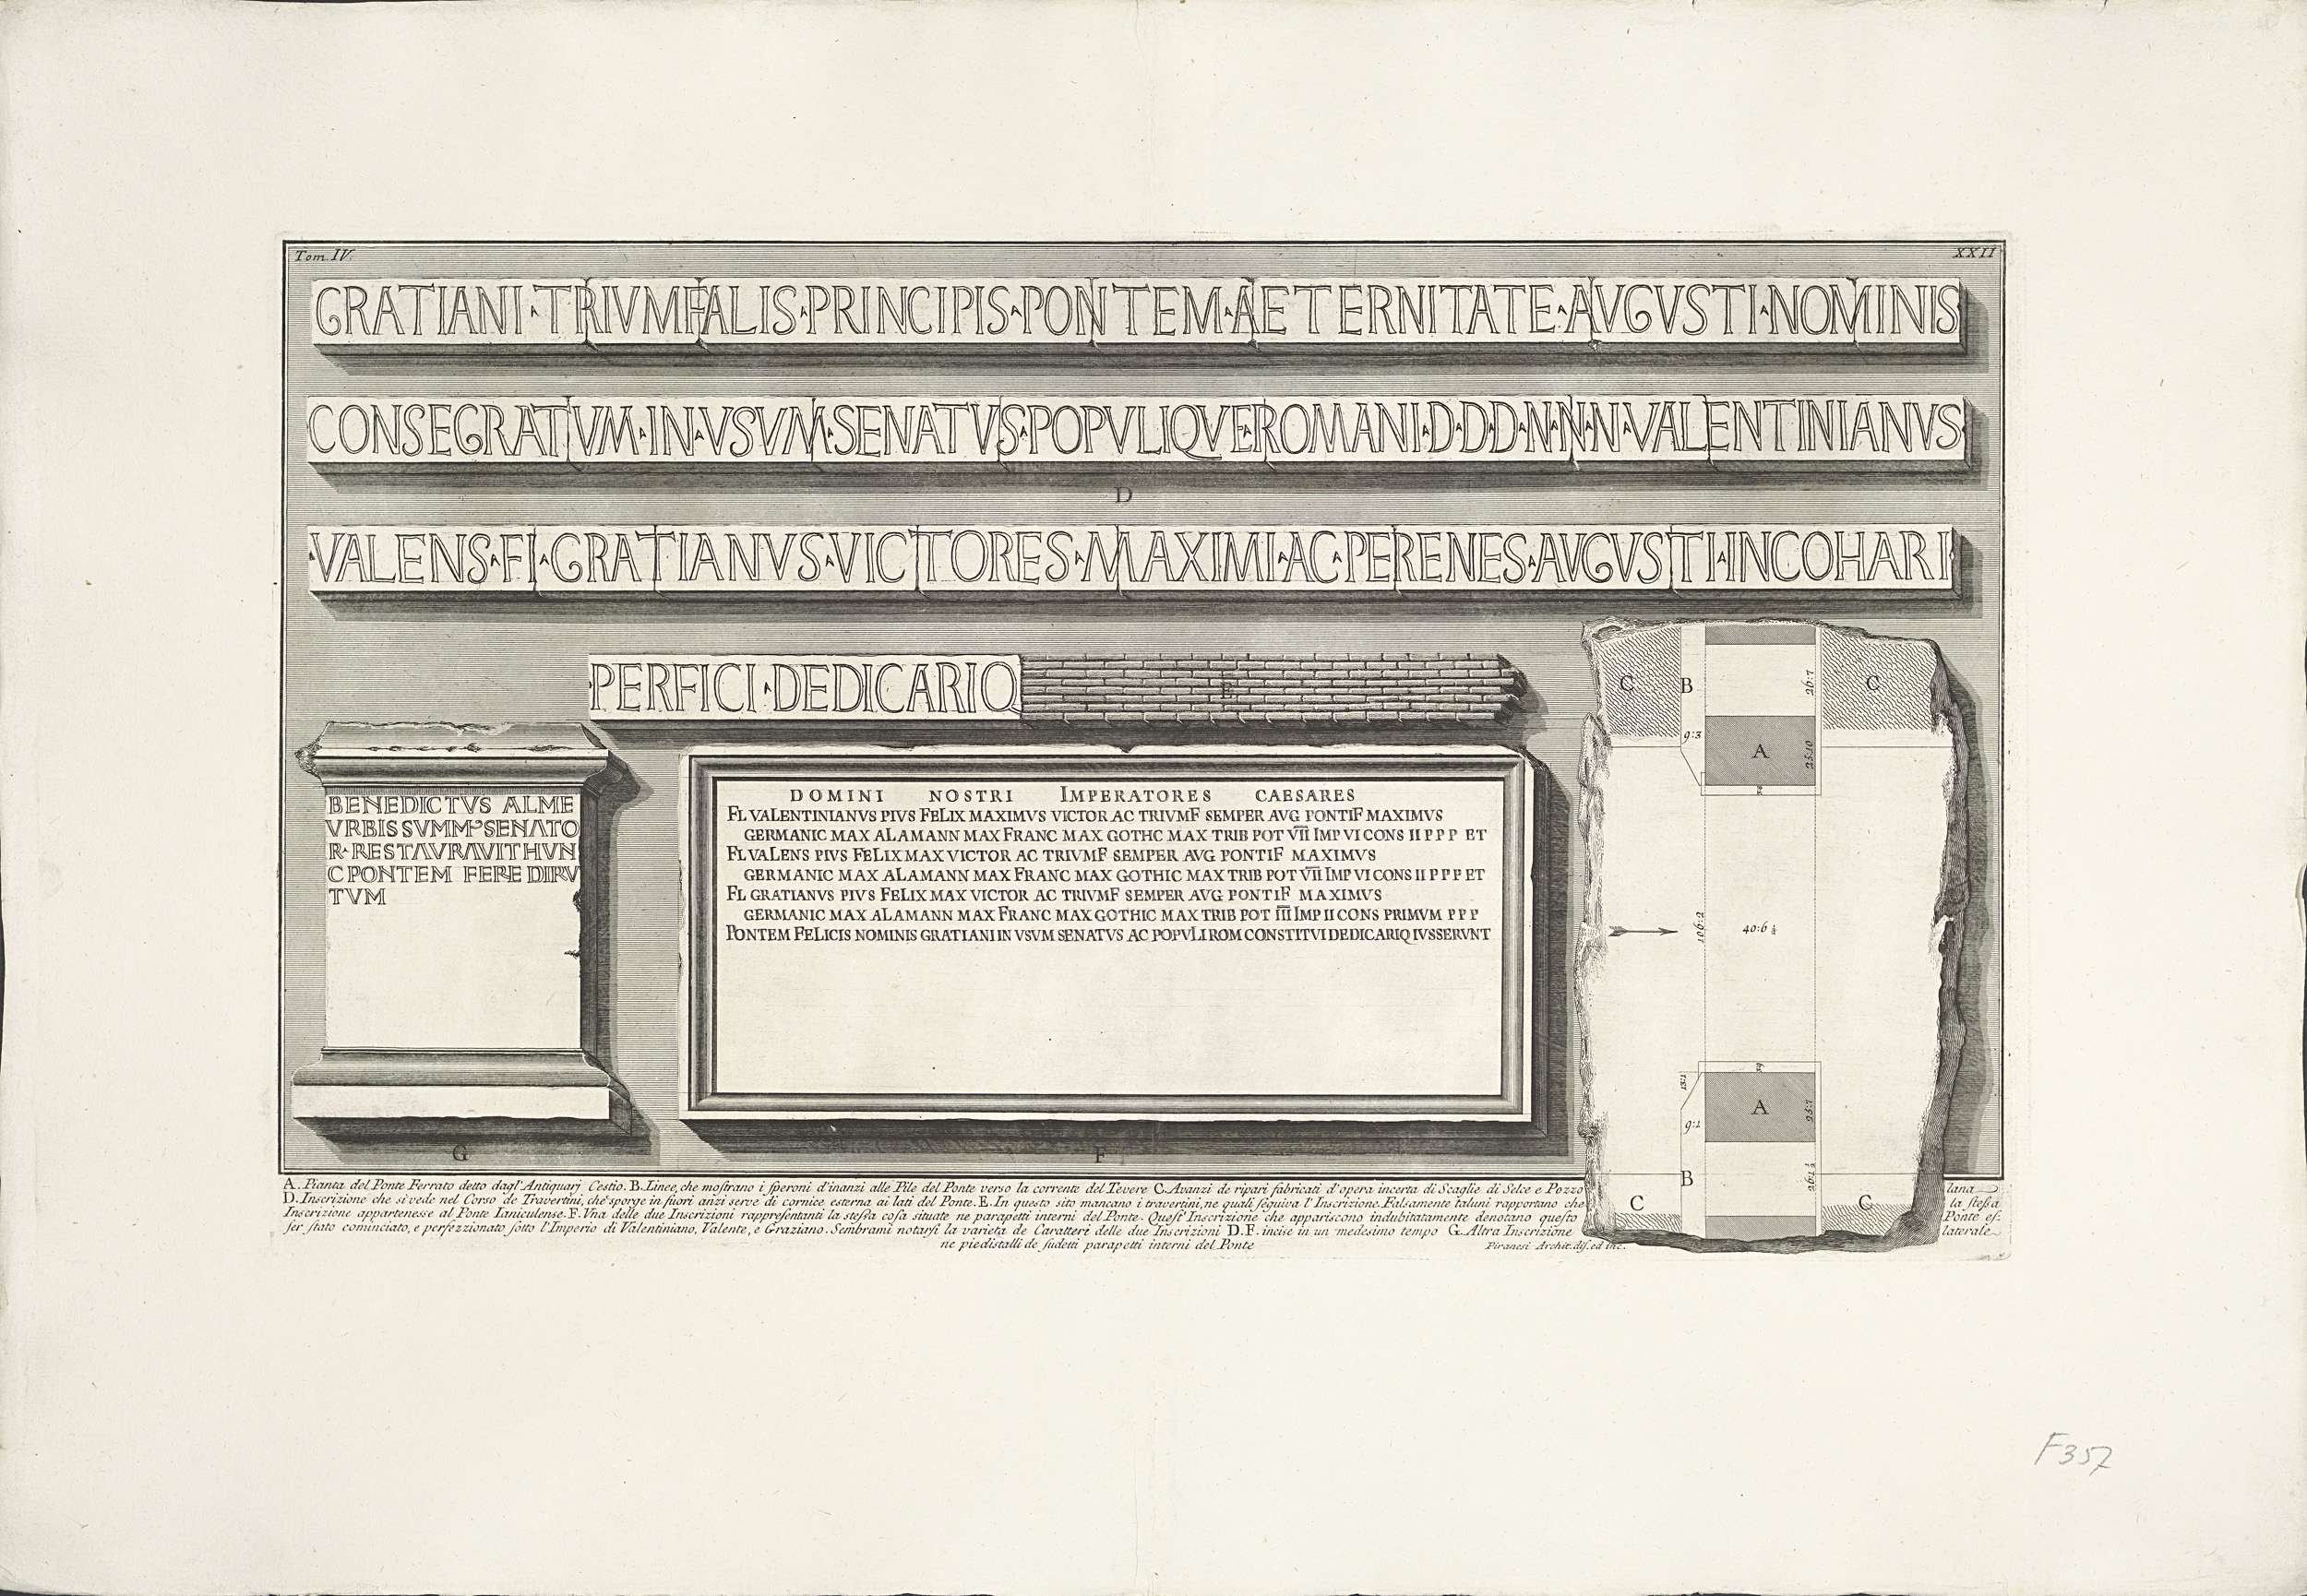 Tom. IV.
XXII
GRATIANI·TRIVMFALIS·PRINCIPIS·PONTEM·AETERNITATE·AVGVSTI·NOMINIS
CONSEGRATVM·IN·VSVM·SENATVS·POPVLIQVE·ROMANI·D·D·D·N·N·N·VALENTINIANVS
D
·VALENS·FI·GRATIANVS·VICTORES·MAXIMI·AC·PERENES·AVGVSTI·INCOHARI
·PERFICI·DEDICARIQ
E
BENEDICTVS ALME
VRBIS SVMMꝰ SENATO
R·RESTAVRAVIT HVN
C PONTEM FERE DIRV
TVM
G
DOMINI NOSTRI IMPERATORES CAESARES
FL VALENTINIANVS PIVS FELIX MAXIMVS VICTOR AC TRIVMF SEMPER AVG PONTIF MAXIMVS
GERMANIC MAX ALAMANN MAX FRANC MAX GOTHC MAX TRIB POT V̅I̅I̅ IMP VI CONS II P P P ET
FL VALENS PIVS FELIX MAX VICTOR AC TRIVMF SEMPER AVG PONTIF MAXIMVS
GERMANIC MAX ALAMANN MAX FRANC MAX GOTHIC MAX TRIB POT V̅I̅I̅ IMP VI CONS II P P P ET
FL GRATIANVS PIVS FELIX MAX VICTOR AC TRIVMF SEMPER AVG PONTIF MAXIMVS
GERMANIC MAX ALAMANN MAX FRANC MAX GOTHIC MAX TRIB POT I̅I̅I̅ IMP II CONS PRIMVM P P P
PONTEM FELICIS NOMINIS GRATIANI IN VSVM SENATVS AC POPVLI ROM CONSTITVI DEDICARIQ IVSSERVNT
F
C B 26:7 C
9:3 A 25:10
106:2 40:6½
13:1 39
A 25:7
9:1
B 26:1½
C C
A. Pianta del Ponte Ferrato detto dagl'Antiquarj Cestio. B. Linee, che moſtrano i ſperoni d'inanzi alle Pile del Ponte verso la corrente del Tevere C. Avanzi de ripari fabricati d'opera incerta di Scaglie di Selce e Pozzolana
D. Inscrizione che si vede nel Corso de Travertini, che sporge in fuori anzi serve di cornice esterna ai lati del Ponte. E. In questo sito mancano i travertini, ne quali ſeguiva l'Inscrizione. Falsamente taluni rapportano che la ſteſsa
Inscrizione appartenesse al Ponte Ianiculense. F. Vna delle due Inscrizioni rappreſentanti la steſsa coſa situate ne parapetti interni del Ponte. Queſt'Inscrizione che appariscono indubitatamente denotano queſto Ponte eſ:
ſer ſtato cominciato, e perfezzionato ſotto l'Imperio di Valentiniano, Valente, e Graziano. Sembrami notarſi la varietà de Caratteri delle due Inscrizioni D. F. incise in un medesimo tempo G. Altra Inscrizione laterale
ne piedistalli de ſudetti parapetti interni del Ponte
Piranesi Archit. dis. ed inc.
F357